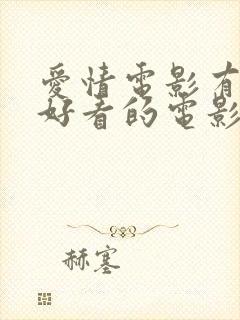 愛情電影有
好看的電影
赫塞